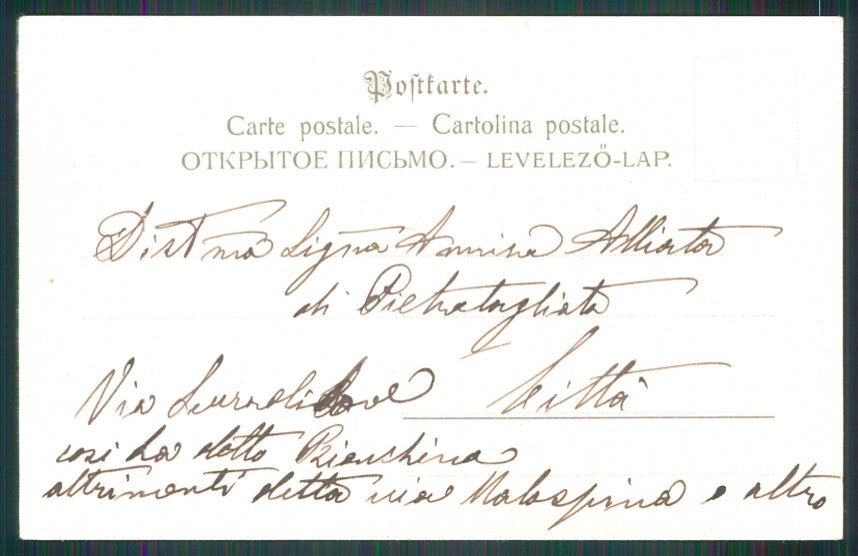 Postkarte.
Carte postale. — Cartolina postale.
ОТКРЫТОЕ ПИСЬМО. — LEVELEZŐ-LAP.
Distma Signa Annina Alliata
di Pietratagliata
Via Città
cosi ha detto Bianchina
altrimenti detta via Malaspina e altro